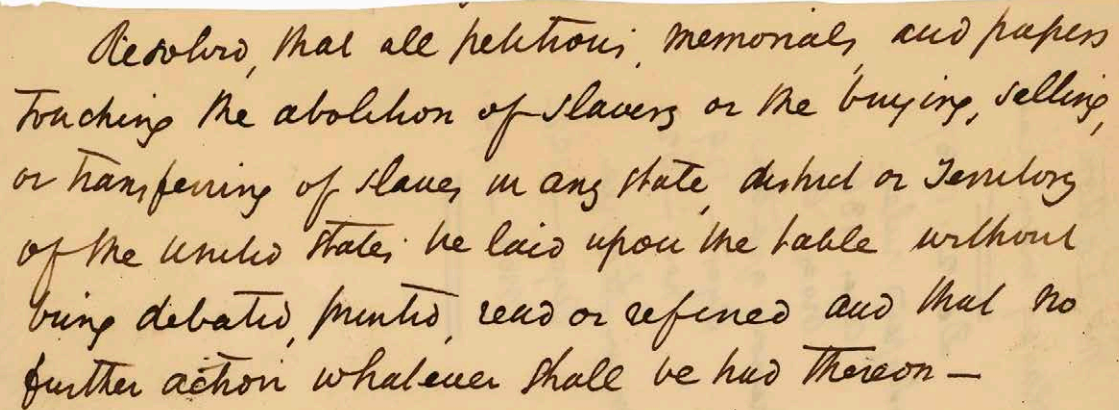 Resolved, that all petitions, memorials, and papers
touching the abolition of slavery or the buying, selling,
or transferring of slaves in any state, district or Territory
of the United States be laid upon the table without
being debated, printed, read or referred and that no
further action whatever shall be had thereon —